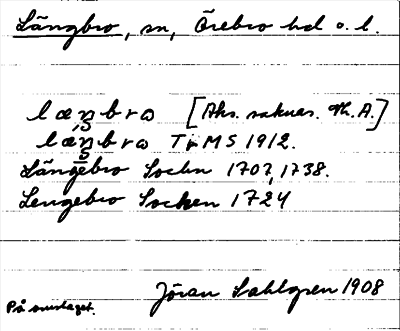 Längbro, sn, Örebro hd o. l.
læŋbro [Aks. saknas. Th. A.]
læŋbro TiMS 1912.
Längebro Sochn 1707, 1738.
Lengebro Socken 1724
Jöran Sahlgren 1908
På omslaget.